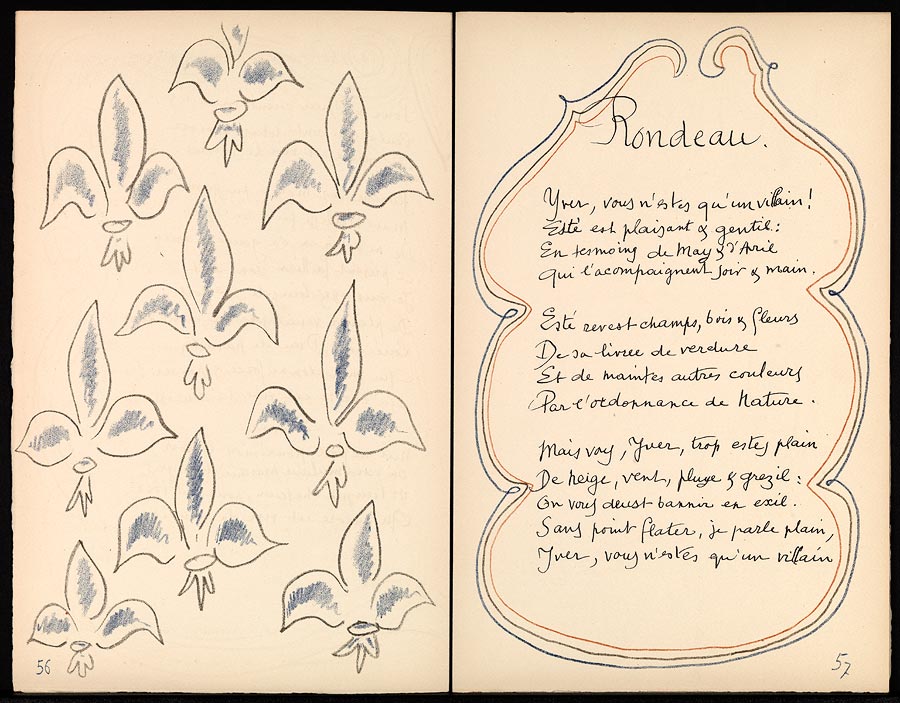 56
Rondeau.
Yver, vous n'estes qu'un villain!
Esté est plaisant & gentil:
En tesmoing de May & d'Avril
Qui l'acompaignent soir & main.
Esté revest champs, bois & fleurs
De sa livree de verdure
Et de maintes autres couleurs
Par l'ordonnance de Nature.
Mais vous, Yver, trop estes plain
De neige, vent, pluye & grezil:
On vous deust bannir en exil.
Sans point flater, je parle plain,
Yver, vous n'estes qu'un villain
57